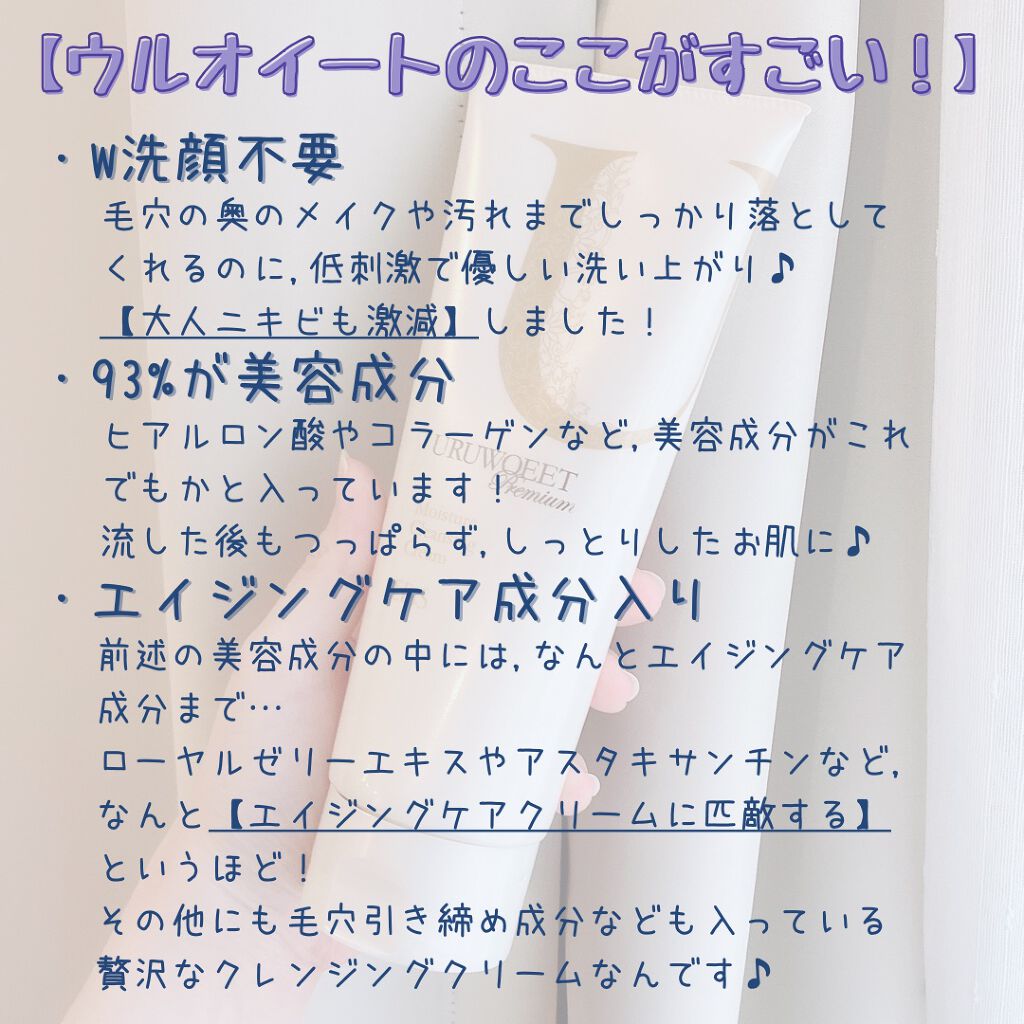 【ウルオイートのここがすごい！】
・W洗顔不要
毛穴の奥のメイクや汚れまでしっかり落として
くれるのに,低刺激で優しい洗い上がり♪
【大人ニキビも激減】しました！
・93%が美容成分
ヒアルロン酸やコラーゲンなど,美容成分がこれ
でもかと入っています！
流した後もつっぱらず,しっとりしたお肌に♪
・エイジングケア成分入り
前述の美容成分の中には,なんとエイジングケア
成分まで…
ローヤルゼリーエキスやアスタキサンチンなど,
なんと【エイジングケアクリームに匹敵する】
というほど！
その他にも毛穴引き締め成分なども入っている
贅沢なクレンジングクリームなんです♪
U
URUWOEET
Premium